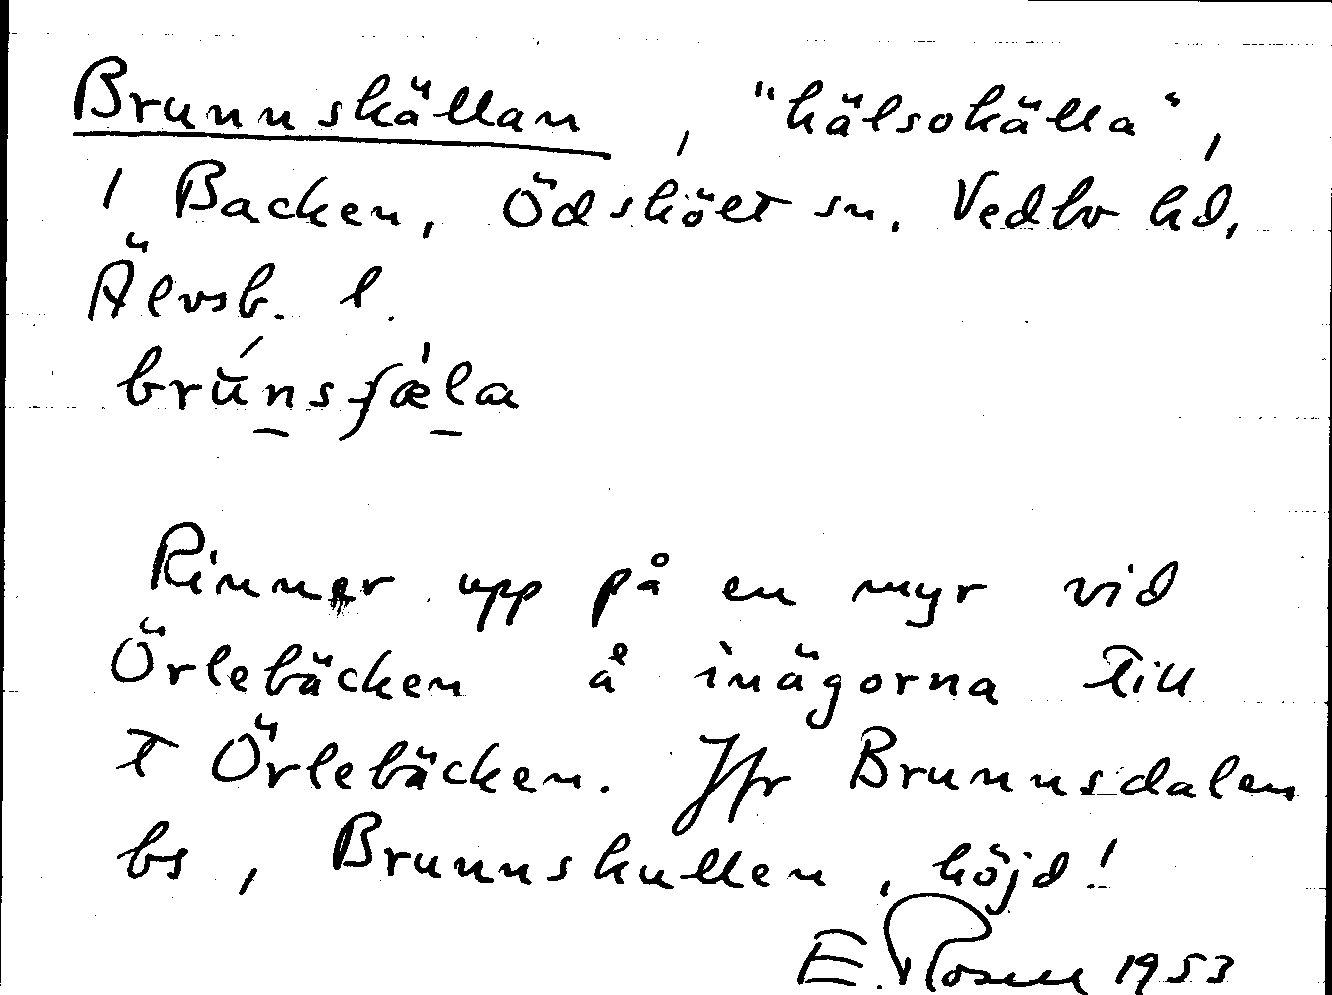 Brunnskällan, "hälsokälla",
/ Backen, Ödsköлt sn. Vedbo hd,
Älvsb. l.
brúnsʃæ̀la
Rinner upp på en myr vid
Örlebäcken å inägorna till
T Örlebäcken. Jfr Brunnsdalen
bs, Brunnskullen, höjd!
E. Rosen 1953